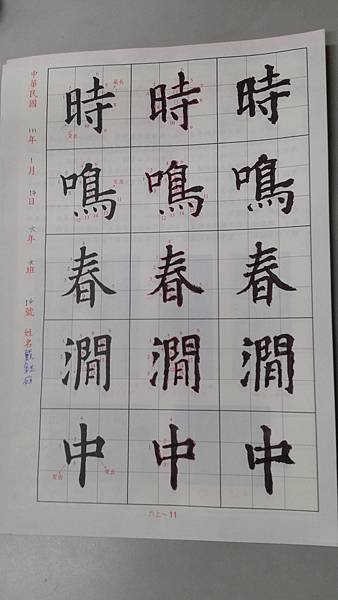 時 時 時
鳴 鳴 鳴
春 春 春
澗 澗 澗
中 中 中
中華民國 111 年 1 月 19 日 六 年 班 號 姓名
六上~11